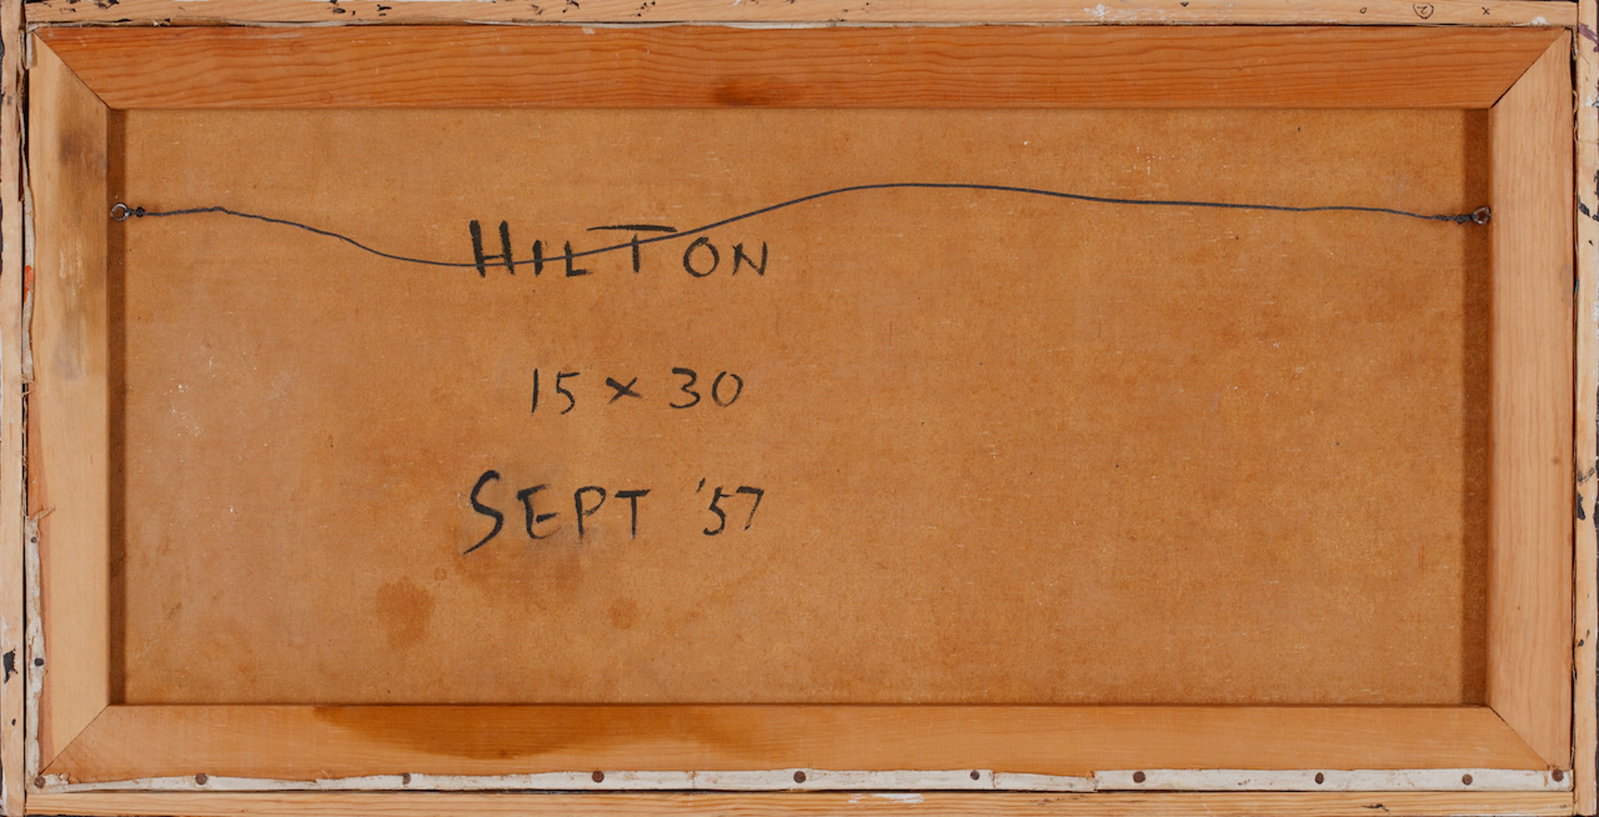 HILTON
15 x 30
SEPT '57